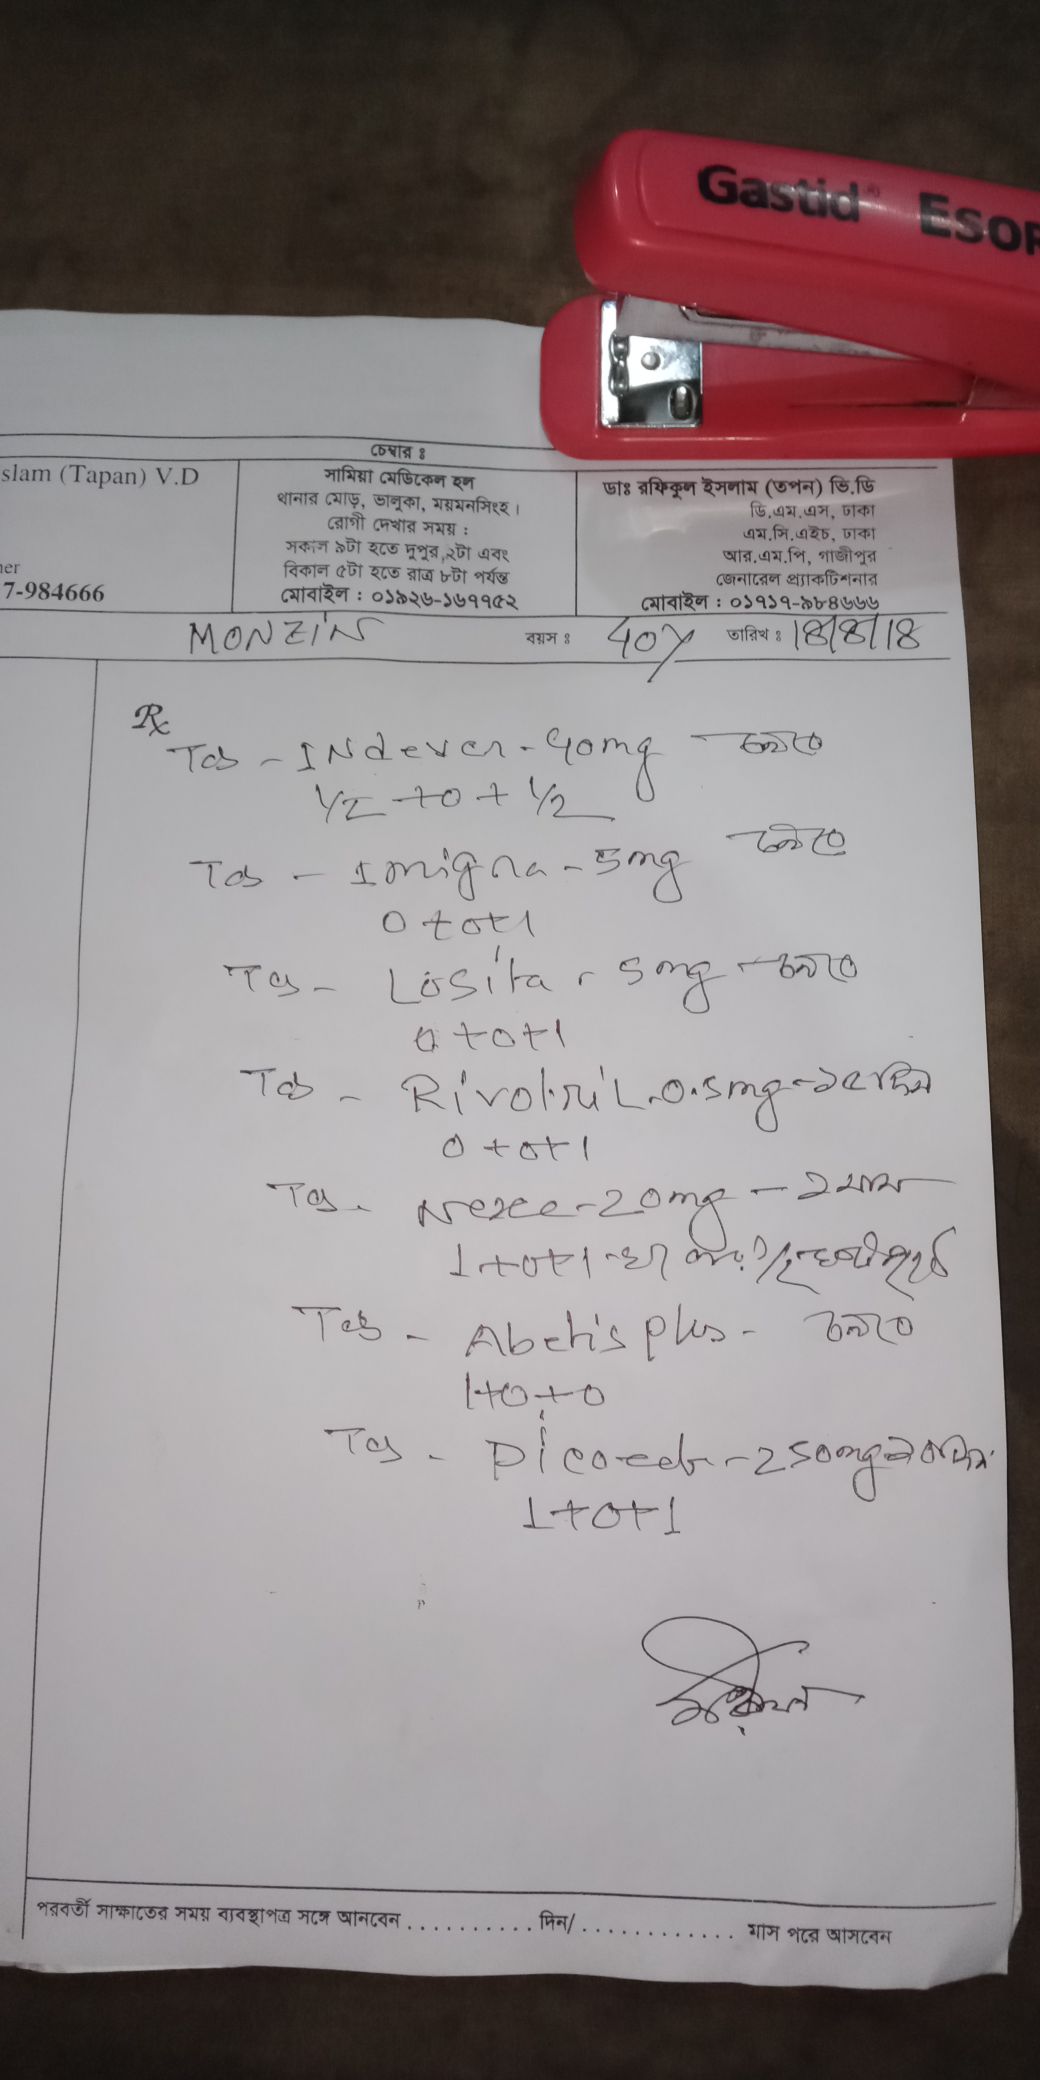 Gastid® ESOR
চেম্বার ঃ
slam (Tapan) V.D
ner
7-984666
সামিয়া মেডিকেল হল
থানার মোড়, ভালুকা, ময়মনসিংহ।
রোগী দেখার সময় :
সকাল ৯টা হতে দুপুর ২টা এবং
বিকাল ৫টা হতে রাত্র ৮টা পর্যন্ত
মোবাইল : ০১৯২৬-১৬৭৭৫২
ডাঃ রফিকুল ইসলাম (তপন) ভি.ডি
ডি.এম.এস, ঢাকা
এম.সি.এইচ, ঢাকা
আর.এম.পি, গাজীপুর
জেনারেল প্র্যাকটিশনার
মোবাইল : ০১৭১৭-৯৮৪৬৬৬
MONZIN বয়স ঃ 40y তারিখ ঃ 18/8/18
Rx
Tab - Indever - 40mg - চলবে
1/2 + 0 + 1/2
Tab - Imigra - 5mg - চলবে
0 + 0 + 1
Tab - Losita - 5mg - চলবে
0 + 0 + 1
Tab - Rivotril - 0.5mg - ১৫ দিন
0 + 0 + 1
Tab - 20mg - ১ মাস
1 + 0 + 1
Tab - Abetis plus - চলবে
1 + 0 + 0
Tab - 250mg
1 + 0 + 1
পরবর্তী সাক্ষাতের সময় ব্যবস্থাপত্র সঙ্গে আনবেন . . . . . . . . . . . দিন/ . . . . . . . . . . . . . মাস পরে আসবেন